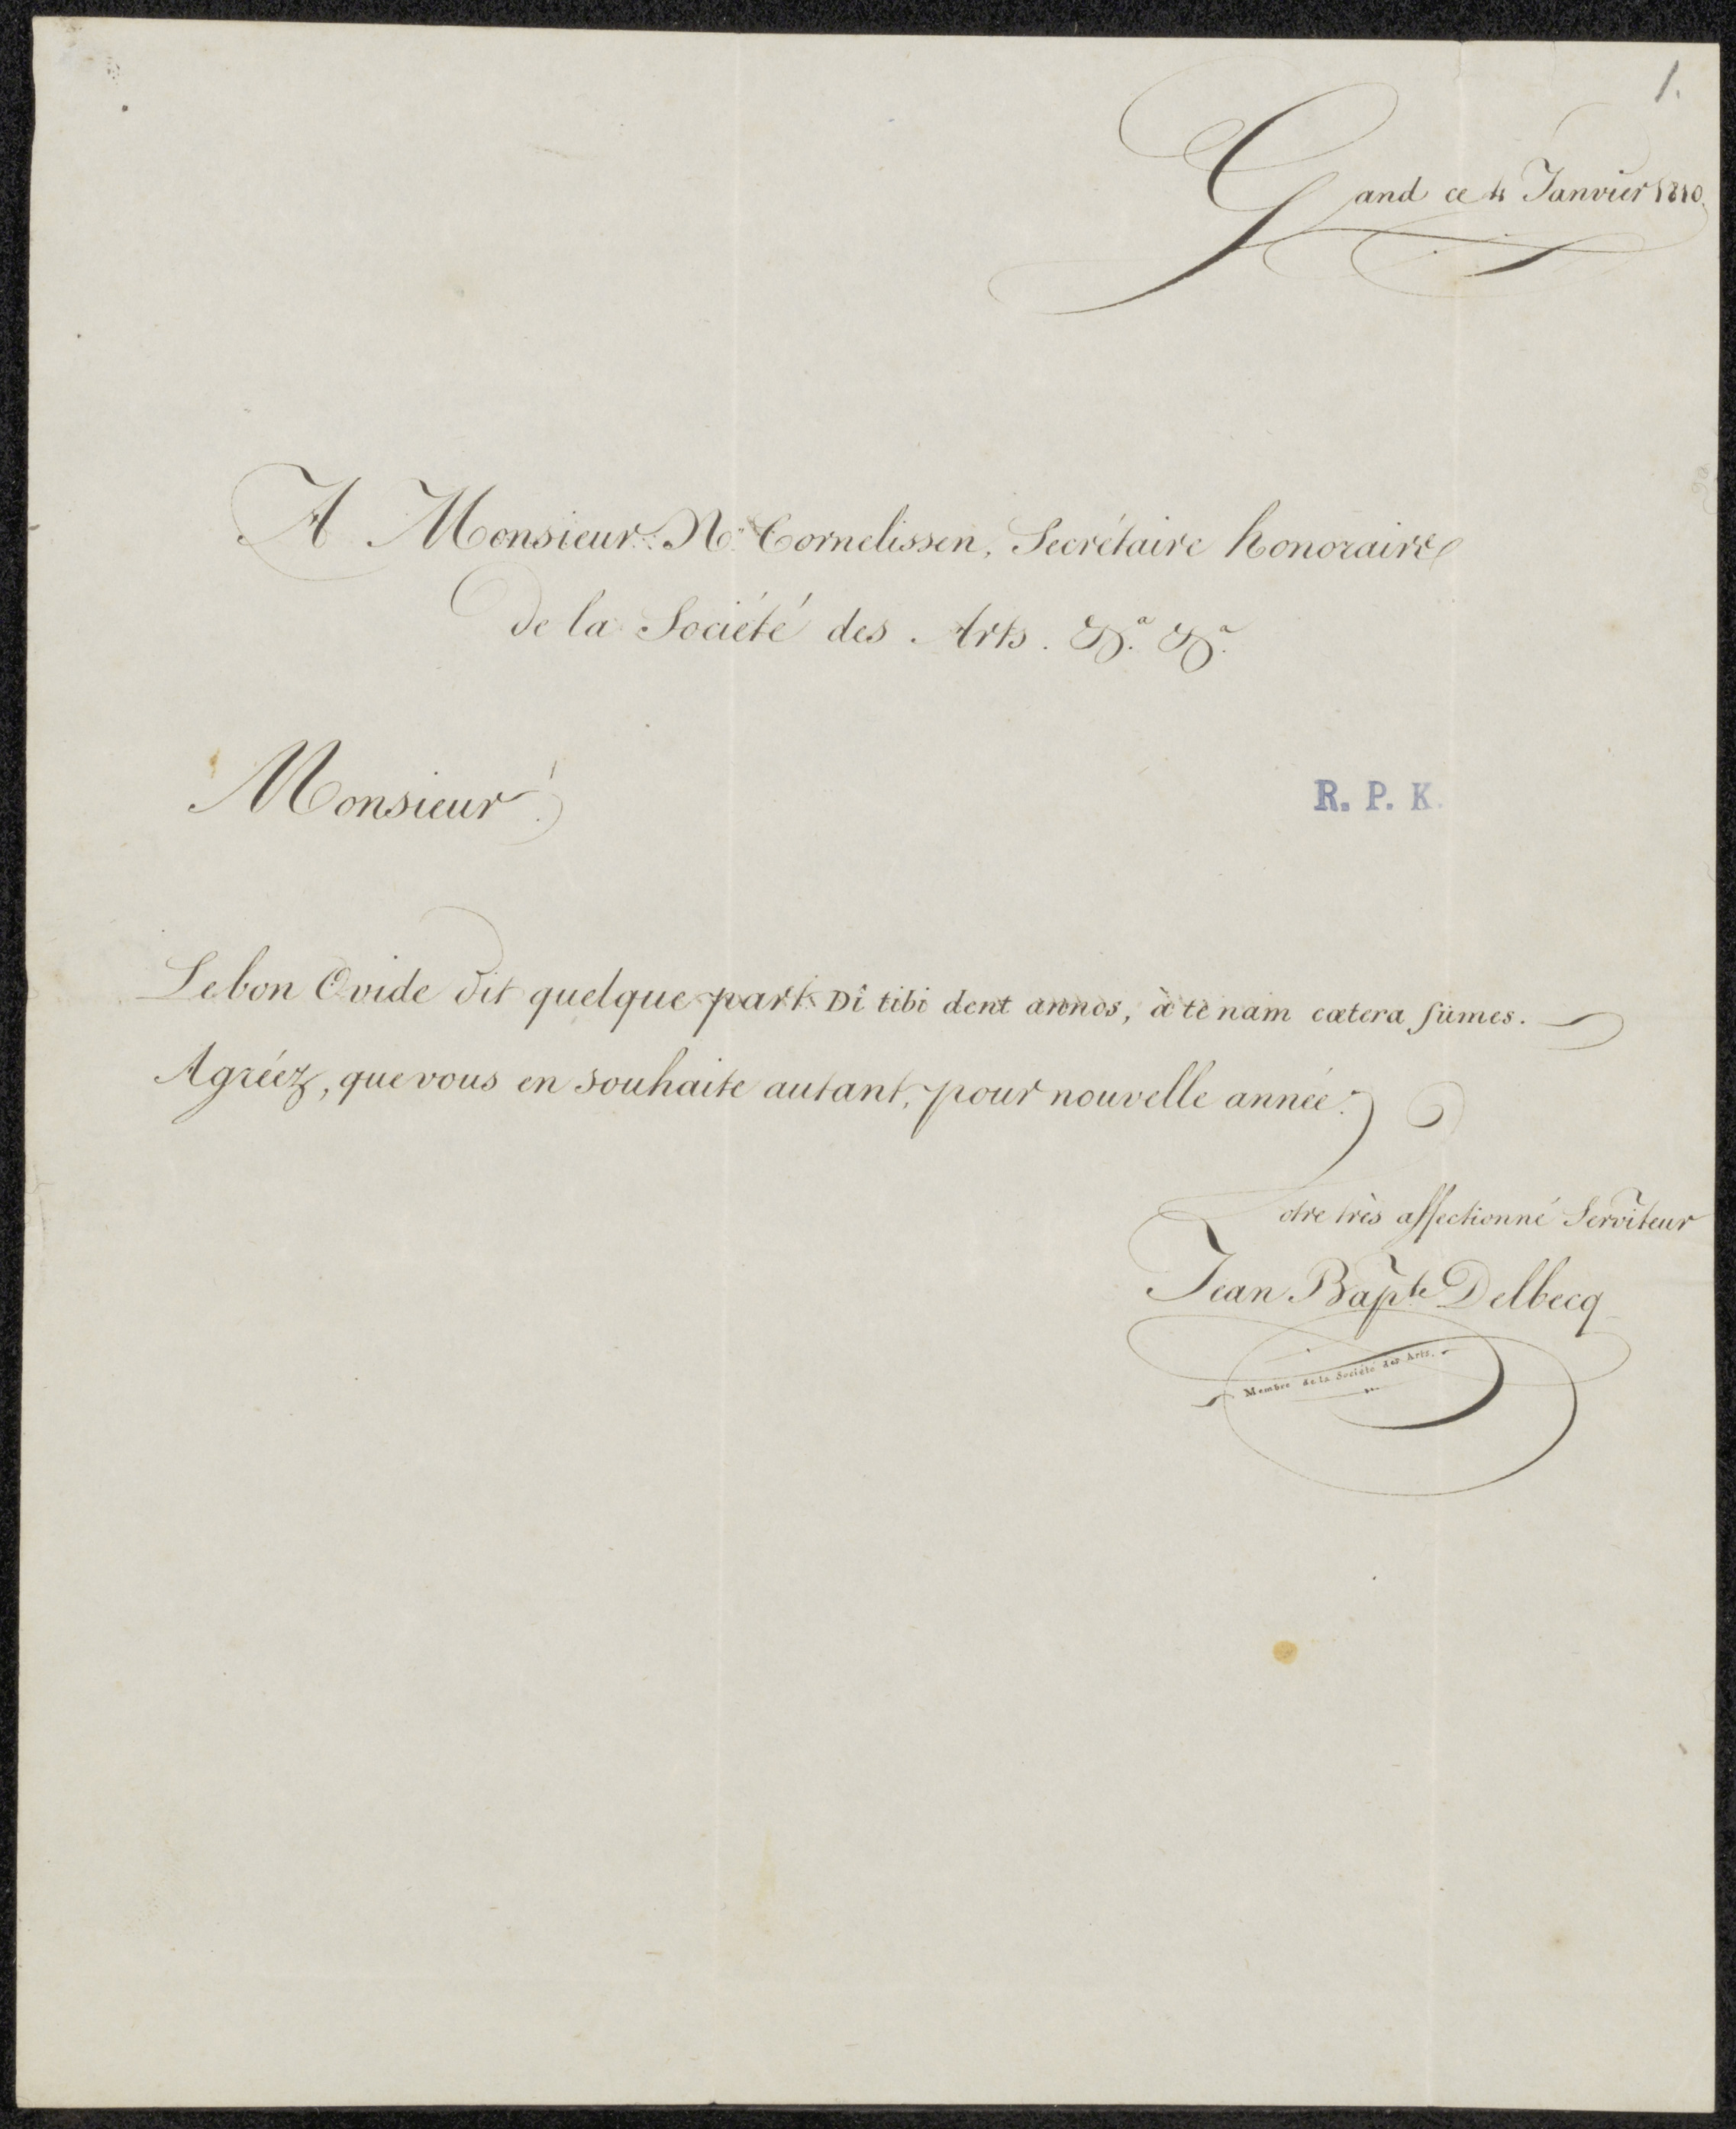 1.
Gand ce 4 Janvier 1810.
A Monsieur N. Cornelissen, Secrétaire honoraire
de la Société des Arts. &.a &.a
Monsieur!
R. P. K.
Le bon Ovide dit quelque part Dî tibi dent annos, à te nam cætera sumes.
Agréez, que vous en souhaite autant, pour nouvelle année.
Votre très affectionné Serviteur
Jean Bapte Delbecq
Membre de la Société des Arts.